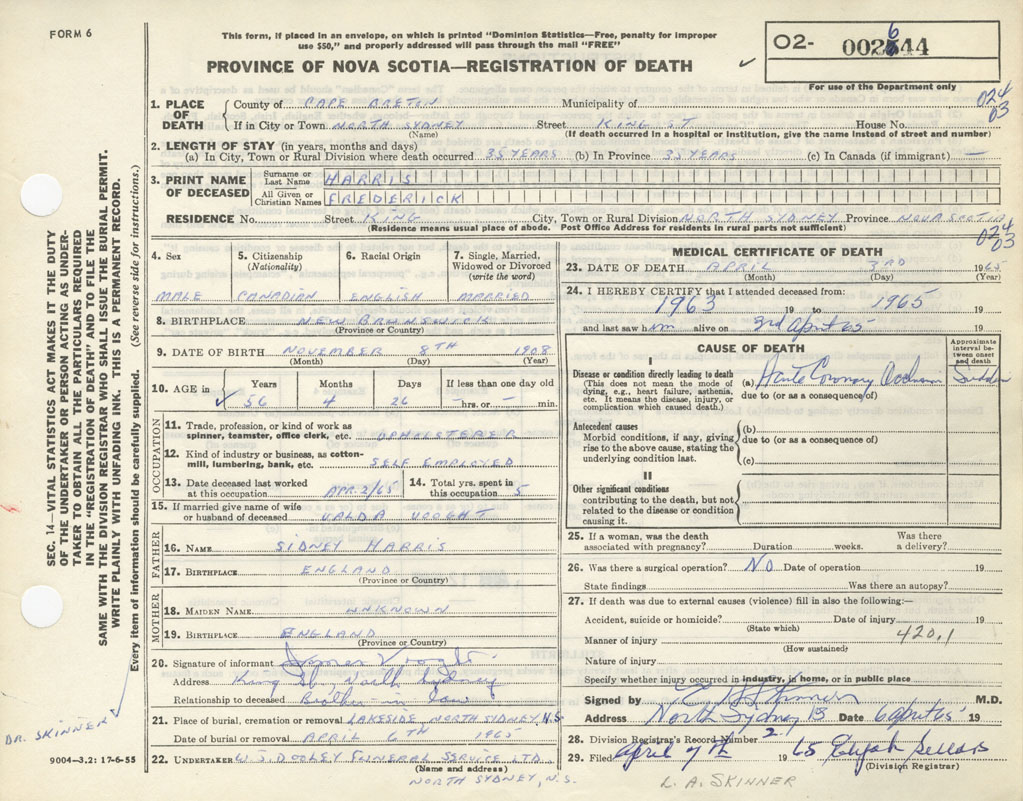 FORM 6
This form, if placed in an envelope, on which is printed "Dominion Statistics—Free, penalty for improper
use $50," and properly addressed will pass through the mail "FREE"
PROVINCE OF NOVA SCOTIA—REGISTRATION OF DEATH
02- 002644
For use of the Department only
024
03
1. PLACE OF DEATH
County of CAPE BRETON Municipality of
If in City or Town NORTH SYDNEY Street KING ST House No.
(Name) (If death occurred in a hospital or institution, give the name instead of street and number)
2. LENGTH OF STAY (in years, months and days)
(a) In City, Town or Rural Division where death occurred 35 YEARS (b) In Province 35 YEARS (c) In Canada (if immigrant) —
3. PRINT NAME OF DECEASED
Surname or Last Name HARRIS
All Given or Christian Names FREDERICK
RESIDENCE No. Street KING City, Town or Rural Division NORTH SYDNEY Province NOVA SCOTIA
(Residence means usual place of abode. Post Office Address for residents in rural parts not sufficient)
024
03
4. Sex MALE
5. Citizenship (Nationality) CANADIAN
6. Racial Origin ENGLISH
7. Single, Married, Widowed or Divorced (write the word) MARRIED
8. BIRTHPLACE NEW BRUNSWICK
(Province or Country)
9. DATE OF BIRTH NOVEMBER 8TH 1908
(Month) (Day) (Year)
10. AGE in Years Months Days If less than one day old
56 4 26 — hrs. or — min.
OCCUPATION
11. Trade, profession, or kind of work as
spinner, teamster, office clerk, etc. UPHOLSTERER
12. Kind of industry or business, as cotton-
mill, lumbering, bank, etc. SELF EMPLOYED
13. Date deceased last worked
at this occupation APR. 2/65
14. Total yrs. spent in
this occupation 5
15. If married give name of wife
or husband of deceased VALDA VROGHT
FATHER
16. NAME SIDNEY HARRIS
17. BIRTHPLACE ENGLAND
(Province or Country)
MOTHER
18. MAIDEN NAME UNKNOWN
19. BIRTHPLACE ENGLAND
(Province or Country)
20. Signature of informant
Address King St. North Sydney
Relationship to deceased Brother in law
21. Place of burial, cremation or removal LAKESIDE NORTH SYDNEY, N.S
Date of burial or removal APRIL 6TH 1965
22. UNDERTAKER W S DOOLEY FUNERAL SERVICE LTD.
(Name and address)
NORTH SYDNEY, N.S.
MEDICAL CERTIFICATE OF DEATH
23. DATE OF DEATH APRIL 3RD 1965
(Month) (Day) (Year)
24. I HEREBY CERTIFY that I attended deceased from:
1963 19 to 1965
and last saw him alive on 3rd April 65 19
CAUSE OF DEATH
Approximate interval between onset and death
I
Disease or condition directly leading to death
(This does not mean the mode of
dying, e.g., heart failure, asthenia,
etc. It means the disease, injury, or
complication which caused death.)
(a) Acute Coronary Occlusion Sudden
due to (or as a consequence of)
Antecedent causes
Morbid conditions, if any, giving
rise to the above cause, stating the
underlying condition last.
(b)
due to (or as a consequence of)
(c)
II
Other significant conditions
contributing to the death, but not
related to the disease or condition
causing it.
25. If a woman, was the death
associated with pregnancy? Duration weeks. Was there
a delivery?
26. Was there a surgical operation? NO Date of operation 19
State findings Was there an autopsy?
27. If death was due to external causes (violence) fill in also the following:—
Accident, suicide or homicide? Date of injury 19
(State which)
Manner of injury 420.1
(How sustained)
Nature of injury
Specify whether injury occurred in industry, in home, or in public place
Signed by Skinner M.D.
Address North Sydney NS Date 6 April 65 19
28. Division Registrar's Record Number 2
29. Filed April 7th 19 65 Elijah Sellars
(Division Registrar)
L. A. SKINNER
SEC. 14—VITAL STATISTICS ACT MAKES IT THE DUTY
OF THE UNDERTAKER OR PERSON ACTING AS UNDER-
TAKER TO OBTAIN ALL THE PARTICULARS REQUIRED
IN THE "REGISTRATION OF DEATH" AND TO FILE THE
SAME WITH THE DIVISION REGISTRAR WHO SHALL ISSUE THE BURIAL PERMIT.
WRITE PLAINLY WITH UNFADING INK. THIS IS A PERMANENT RECORD.
Every item of information should be carefully supplied. (See reverse side for instructions.)
DR. SKINNER
9004—3.2: 17-6-55